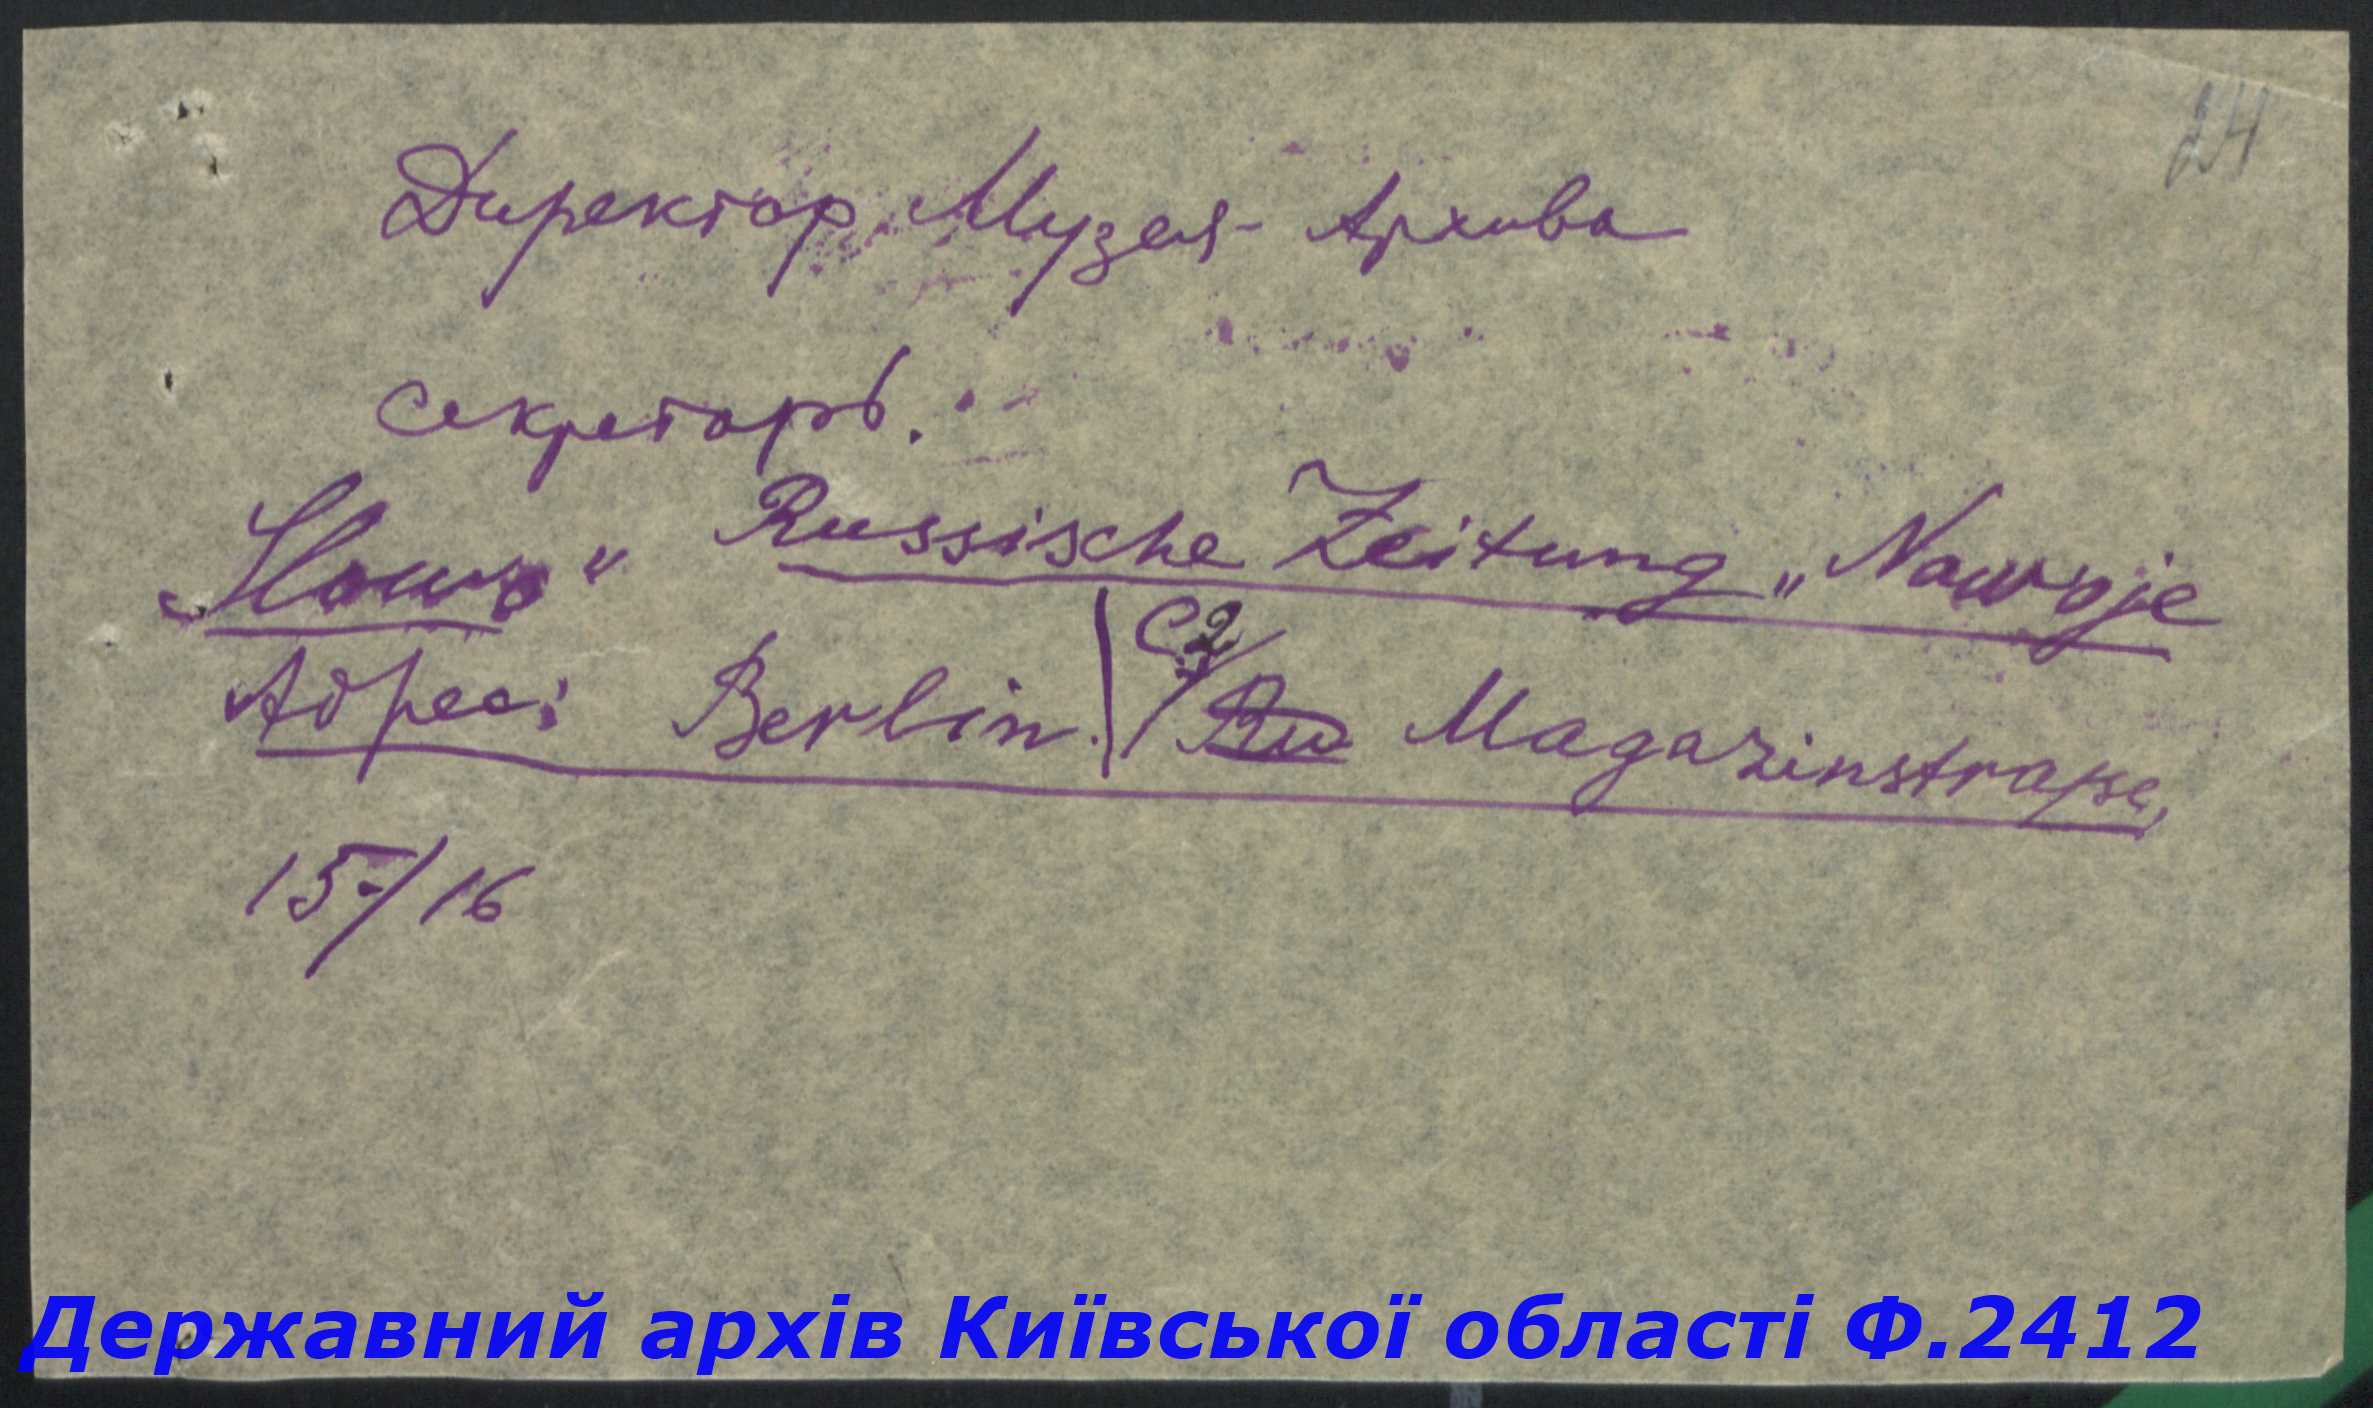 24
Директор Музея-Архива
секретарь.
Russische Zeitung „Nowoje
Slowo"
Адрес: Berlin. C2/ Magazinstraße,
15/16
Державний архів Київської області Ф.2412